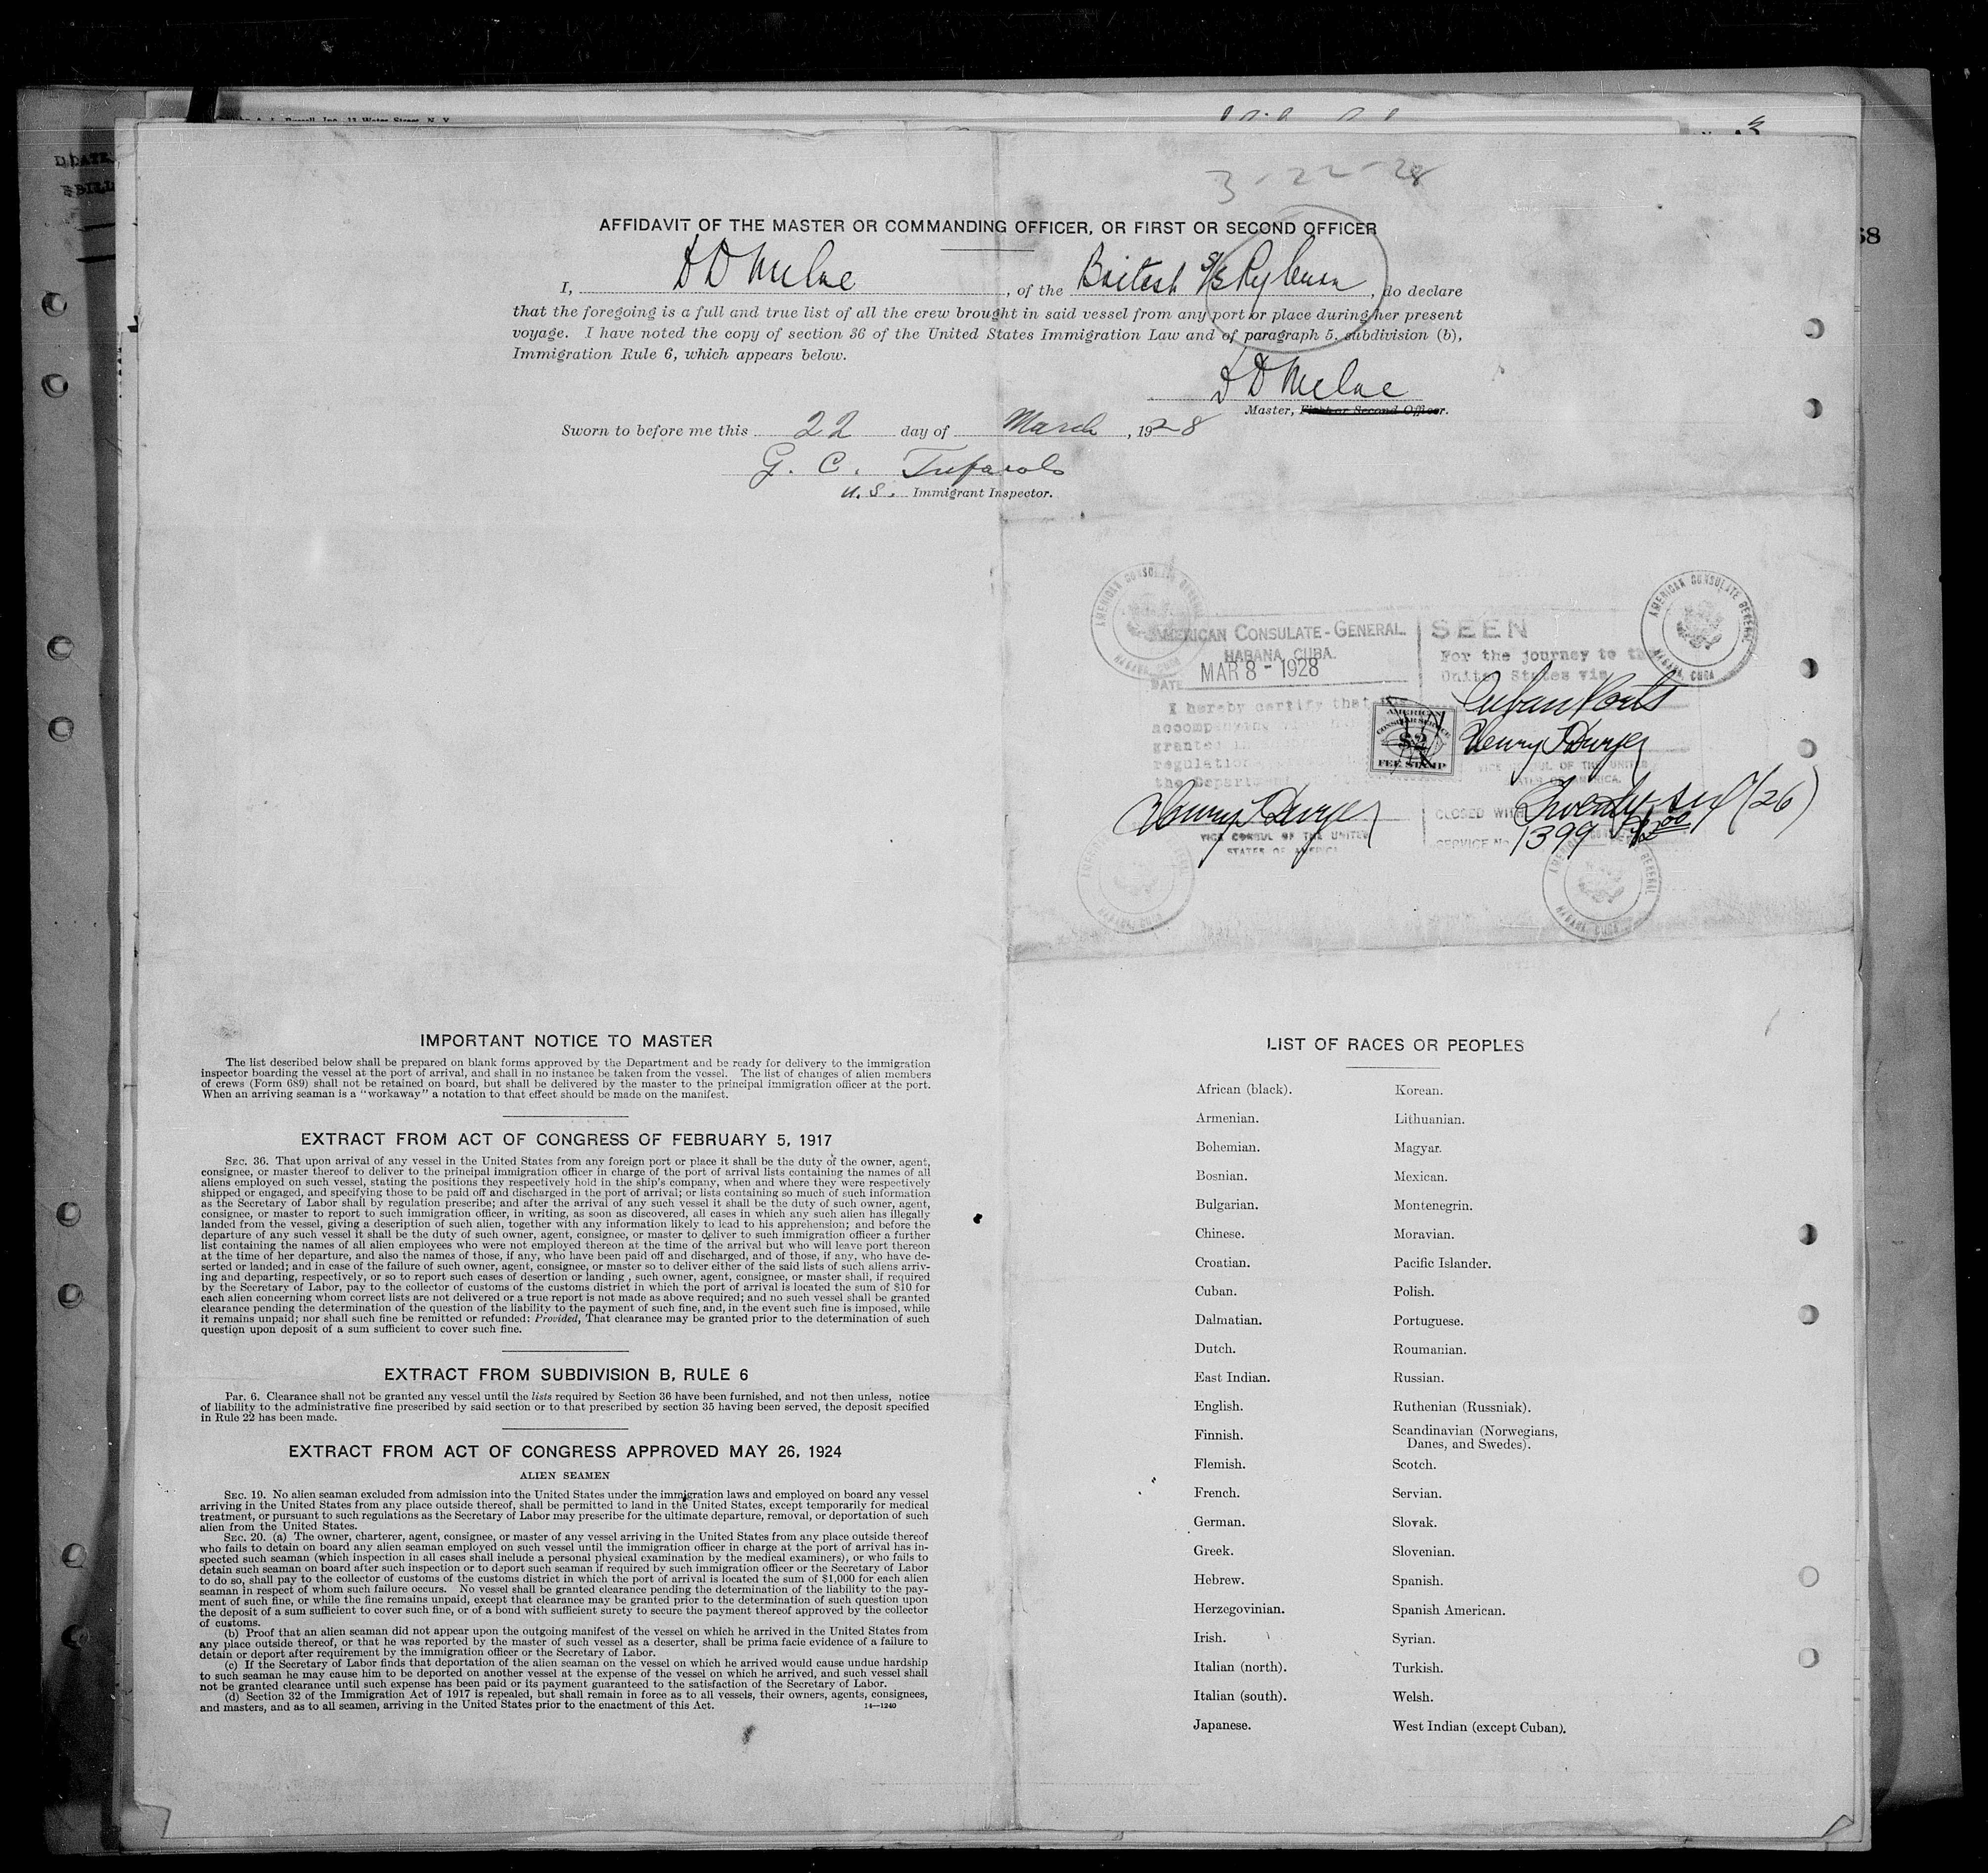 3-22-28
AFFIDAVIT OF THE MASTER OR COMMANDING OFFICER, OR FIRST OR SECOND OFFICER
I, D D Milne, of the British S/S, do declare
that the foregoing is a full and true list of all the crew brought in said vessel from any port or place during her present
voyage. I have noted the copy of section 36 of the United States Immigration Law and of paragraph 5, subdivision (b),
Immigration Rule 6, which appears below.
D D Milne
Master, First or Second Officer.
Sworn to before me this 22 day of March, 1928
G. C.
U.S. Immigrant Inspector.
AMERICAN CONSULATE GENERAL
HABANA, CUBA
AMERICAN CONSULATE GENERAL
HABANA, CUBA
AMERICAN CONSULATE-GENERAL
HABANA, CUBA.
DATE MAR 8 - 1928
I hereby certify that
accompanying
granted in
regulation
the Department
SEEN
For the journey to the
United States via
Cuban Ports
AMERICAN
CONSULAR SERVICE
$2
FEE STAMP
Henry
VICE CONSUL OF THE UNITED
STATES OF AMERICA.
Henry
VICE CONSUL OF THE UNITED
STATES OF AMERICA
CLOSED WITH Twenty six (26)
SERVICE No. 1399 $2.00
HABANA, CUBA
HABANA, CUBA
IMPORTANT NOTICE TO MASTER
The list described below shall be prepared on blank forms approved by the Department and be ready for delivery to the immigration
inspector boarding the vessel at the port of arrival, and shall in no instance be taken from the vessel. The list of changes of alien members
of crews (Form 689) shall not be retained on board, but shall be delivered by the master to the principal immigration officer at the port.
When an arriving seaman is a "workaway" a notation to that effect should be made on the manifest.
EXTRACT FROM ACT OF CONGRESS OF FEBRUARY 5, 1917
SEC. 36. That upon arrival of any vessel in the United States from any foreign port or place it shall be the duty of the owner, agent,
consignee, or master thereof to deliver to the principal immigration officer in charge of the port of arrival lists containing the names of all
aliens employed on such vessel, stating the positions they respectively hold in the ship's company, when and where they were respectively
shipped or engaged, and specifying those to be paid off and discharged in the port of arrival; or lists containing so much of such information
as the Secretary of Labor shall by regulation prescribe; and after the arrival of any such vessel it shall be the duty of such owner, agent,
consignee, or master to report to such immigration officer, in writing, as soon as discovered, all cases in which any such alien has illegally
landed from the vessel, giving a description of such alien, together with any information likely to lead to his apprehension; and before the
departure of any such vessel it shall be the duty of such owner, agent, consignee, or master to deliver to such immigration officer a further
list containing the names of all alien employees who were not employed thereon at the time of the arrival but who will leave port thereon
at the time of her departure, and also the names of those, if any, who have been paid off and discharged, and of those, if any, who have de-
serted or landed; and in case of the failure of such owner, agent, consignee, or master so to deliver either of the said lists of such aliens arriv-
ing and departing, respectively, or so to report such cases of desertion or landing , such owner, agent, consignee, or master shall, if required
by the Secretary of Labor, pay to the collector of customs of the customs district in which the port of arrival is located the sum of $10 for
each alien concerning whom correct lists are not delivered or a true report is not made as above required; and no such vessel shall be granted
clearance pending the determination of the question of the liability to the payment of such fine, and, in the event such fine is imposed, while
it remains unpaid; nor shall such fine be remitted or refunded: Provided, That clearance may be granted prior to the determination of such
question upon deposit of a sum sufficient to cover such fine.
EXTRACT FROM SUBDIVISION B, RULE 6
Par. 6. Clearance shall not be granted any vessel until the lists required by Section 36 have been furnished, and not then unless, notice
of liability to the administrative fine prescribed by said section or to that prescribed by section 35 having been served, the deposit specified
in Rule 22 has been made.
EXTRACT FROM ACT OF CONGRESS APPROVED MAY 26, 1924
ALIEN SEAMEN
SEC. 19. No alien seaman excluded from admission into the United States under the immigration laws and employed on board any vessel
arriving in the United States from any place outside thereof, shall be permitted to land in the United States, except temporarily for medical
treatment, or pursuant to such regulations as the Secretary of Labor may prescribe for the ultimate departure, removal, or deportation of such
alien from the United States.
SEC. 20. (a) The owner, charterer, agent, consignee, or master of any vessel arriving in the United States from any place outside thereof
who fails to detain on board any alien seaman employed on such vessel until the immigration officer in charge at the port of arrival has in-
spected such seaman (which inspection in all cases shall include a personal physical examination by the medical examiners), or who fails to
detain such seaman on board after such inspection or to deport such seaman if required by such immigration officer or the Secretary of Labor
to do so, shall pay to the collector of customs of the customs district in which the port of arrival is located the sum of $1,000 for each alien
seaman in respect of whom such failure occurs. No vessel shall be granted clearance pending the determination of the liability to the pay-
ment of such fine, or while the fine remains unpaid, except that clearance may be granted prior to the determination of such question upon
the deposit of a sum sufficient to cover such fine, or of a bond with sufficient surety to secure the payment thereof approved by the collector
of customs.
(b) Proof that an alien seaman did not appear upon the outgoing manifest of the vessel on which he arrived in the United States from
any place outside thereof, or that he was reported by the master of such vessel as a deserter, shall be prima facie evidence of a failure to
detain or deport after requirement by the immigration officer or the Secretary of Labor.
(c) If the Secretary of Labor finds that deportation of the alien seaman on the vessel on which he arrived would cause undue hardship
to such seaman he may cause him to be deported on another vessel at the expense of the vessel on which he arrived, and such vessel shall
not be granted clearance until such expense has been paid or its payment guaranteed to the satisfaction of the Secretary of Labor.
(d) Section 32 of the Immigration Act of 1917 is repealed, but shall remain in force as to all vessels, their owners, agents, consignees,
and masters, and as to all seamen, arriving in the United States prior to the enactment of this Act.
14—1240
LIST OF RACES OR PEOPLES
African (black).
Armenian.
Bohemian.
Bosnian.
Bulgarian.
Chinese.
Croatian.
Cuban.
Dalmatian.
Dutch.
East Indian.
English.
Finnish.
Flemish.
French.
German.
Greek.
Hebrew.
Herzegovinian.
Irish.
Italian (north).
Italian (south).
Japanese.
Korean.
Lithuanian.
Magyar.
Mexican.
Montenegrin.
Moravian.
Pacific Islander.
Polish.
Portuguese.
Roumanian.
Russian.
Ruthenian (Russniak).
Scandinavian (Norwegians,
Danes, and Swedes).
Scotch.
Servian.
Slovak.
Slovenian.
Spanish.
Spanish American.
Syrian.
Turkish.
Welsh.
West Indian (except Cuban).